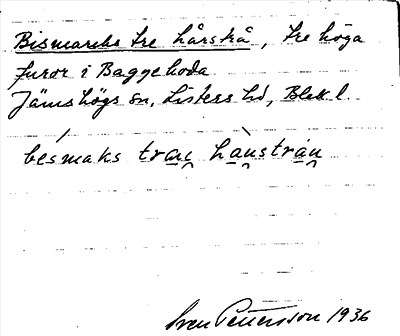 Bismarcks tre hårstrå, tre höga
furor i Baggeboda
Jämshögs sn, Listers hd, Blek l.
bésmaks trai̯ hànstrán
Sven Pettersson 1936